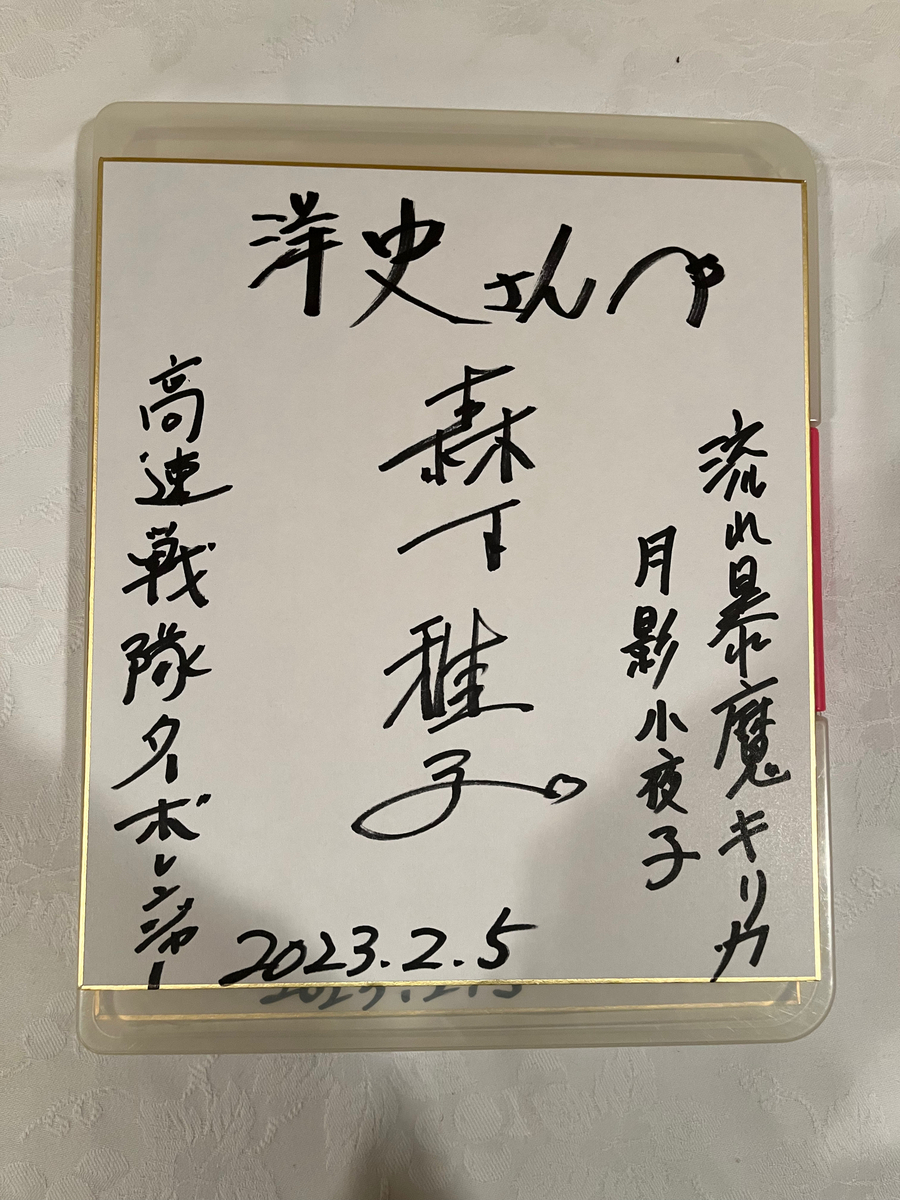 洋史さんへ
流れ暴魔キリカ
月影小夜子
森下雅子
高速戦隊ターボレンジャー
2023.2.5